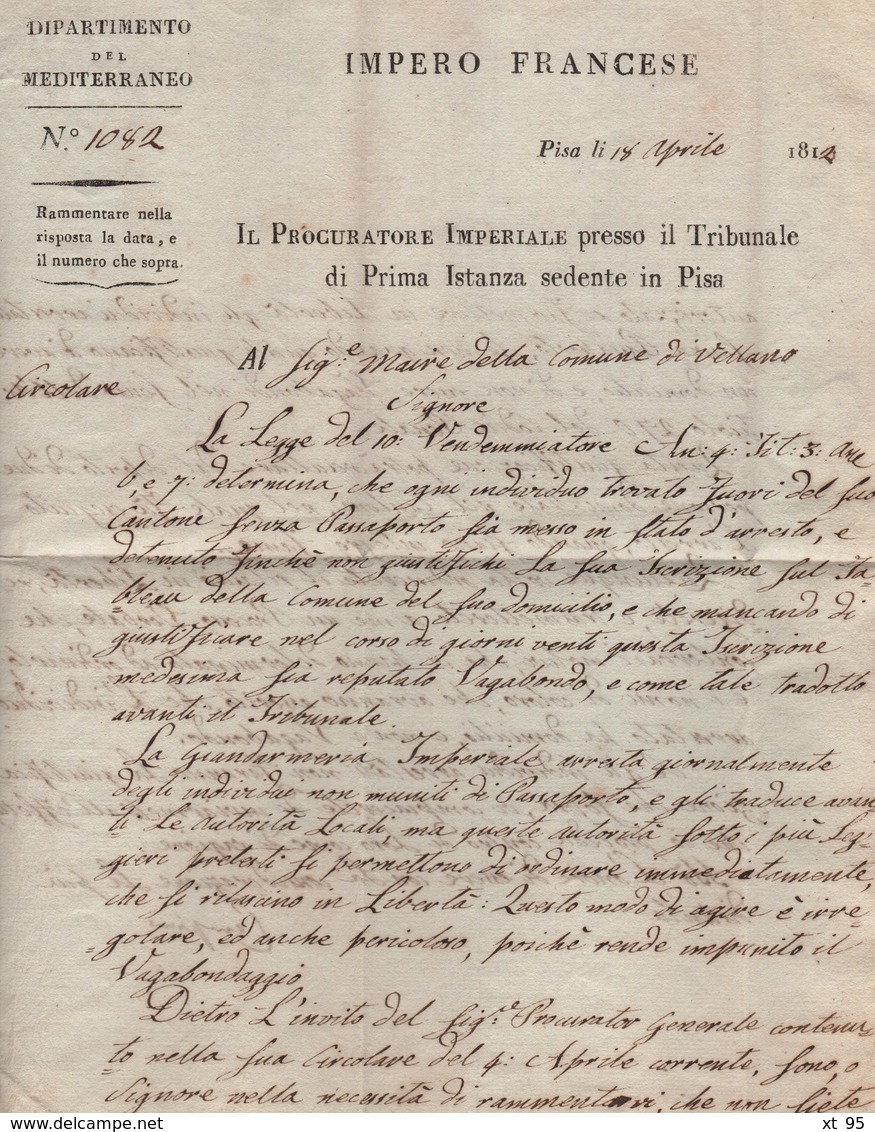 DIPARTIMENTO
DEL
MEDITERRANEO
N.° 1082
Rammentare nella
risposta la data, e
il numero che sopra.
IMPERO FRANCESE
Pisa li 18 Aprile 1812
IL PROCURATORE IMPERIALE presso il Tribunale
di Prima Istanza sedente in Pisa
Al Sig.e Maire della Comune di Vellano
Circolare
Signore
La Legge del 10: Vendemmiatore An: 4: Tit: 3:
6, e 7: determina, che ogni individuo trovato fuori del suo
Cantone senza Passaporto sia messo in stato d'arresto, e
detenuto finchè non giustifichi la sua Iscrizione sul Ta
=bleau della Comune del suo domicilio, e che mancando di
giustificare nel corso di giorni venti questa Iscrizione
medesima sia reputato Vagabondo, e come tale tradotto
avanti il Tribunale.
La Giandarmeria Imperiale arresta giornalmente
degli individui non muniti di Passaporto, e gli traduce avan
=ti le autorità Locali, ma queste autorità sotto i più Leg=
gieri pretesti si permettono di ordinare immediatamente,
che si rilascino in Libertà: Questo modo di agire è irre
=golare, ed anche pericoloso, poichè rende impunito il
Vagabondaggio
Dietro L'invito del Sig.e Procurator Generale contenu=
=to nella sua Circolare del 4: Aprile corrente, sono, o
Signore nella necessità di rammentarvi, che non siete
xt 95